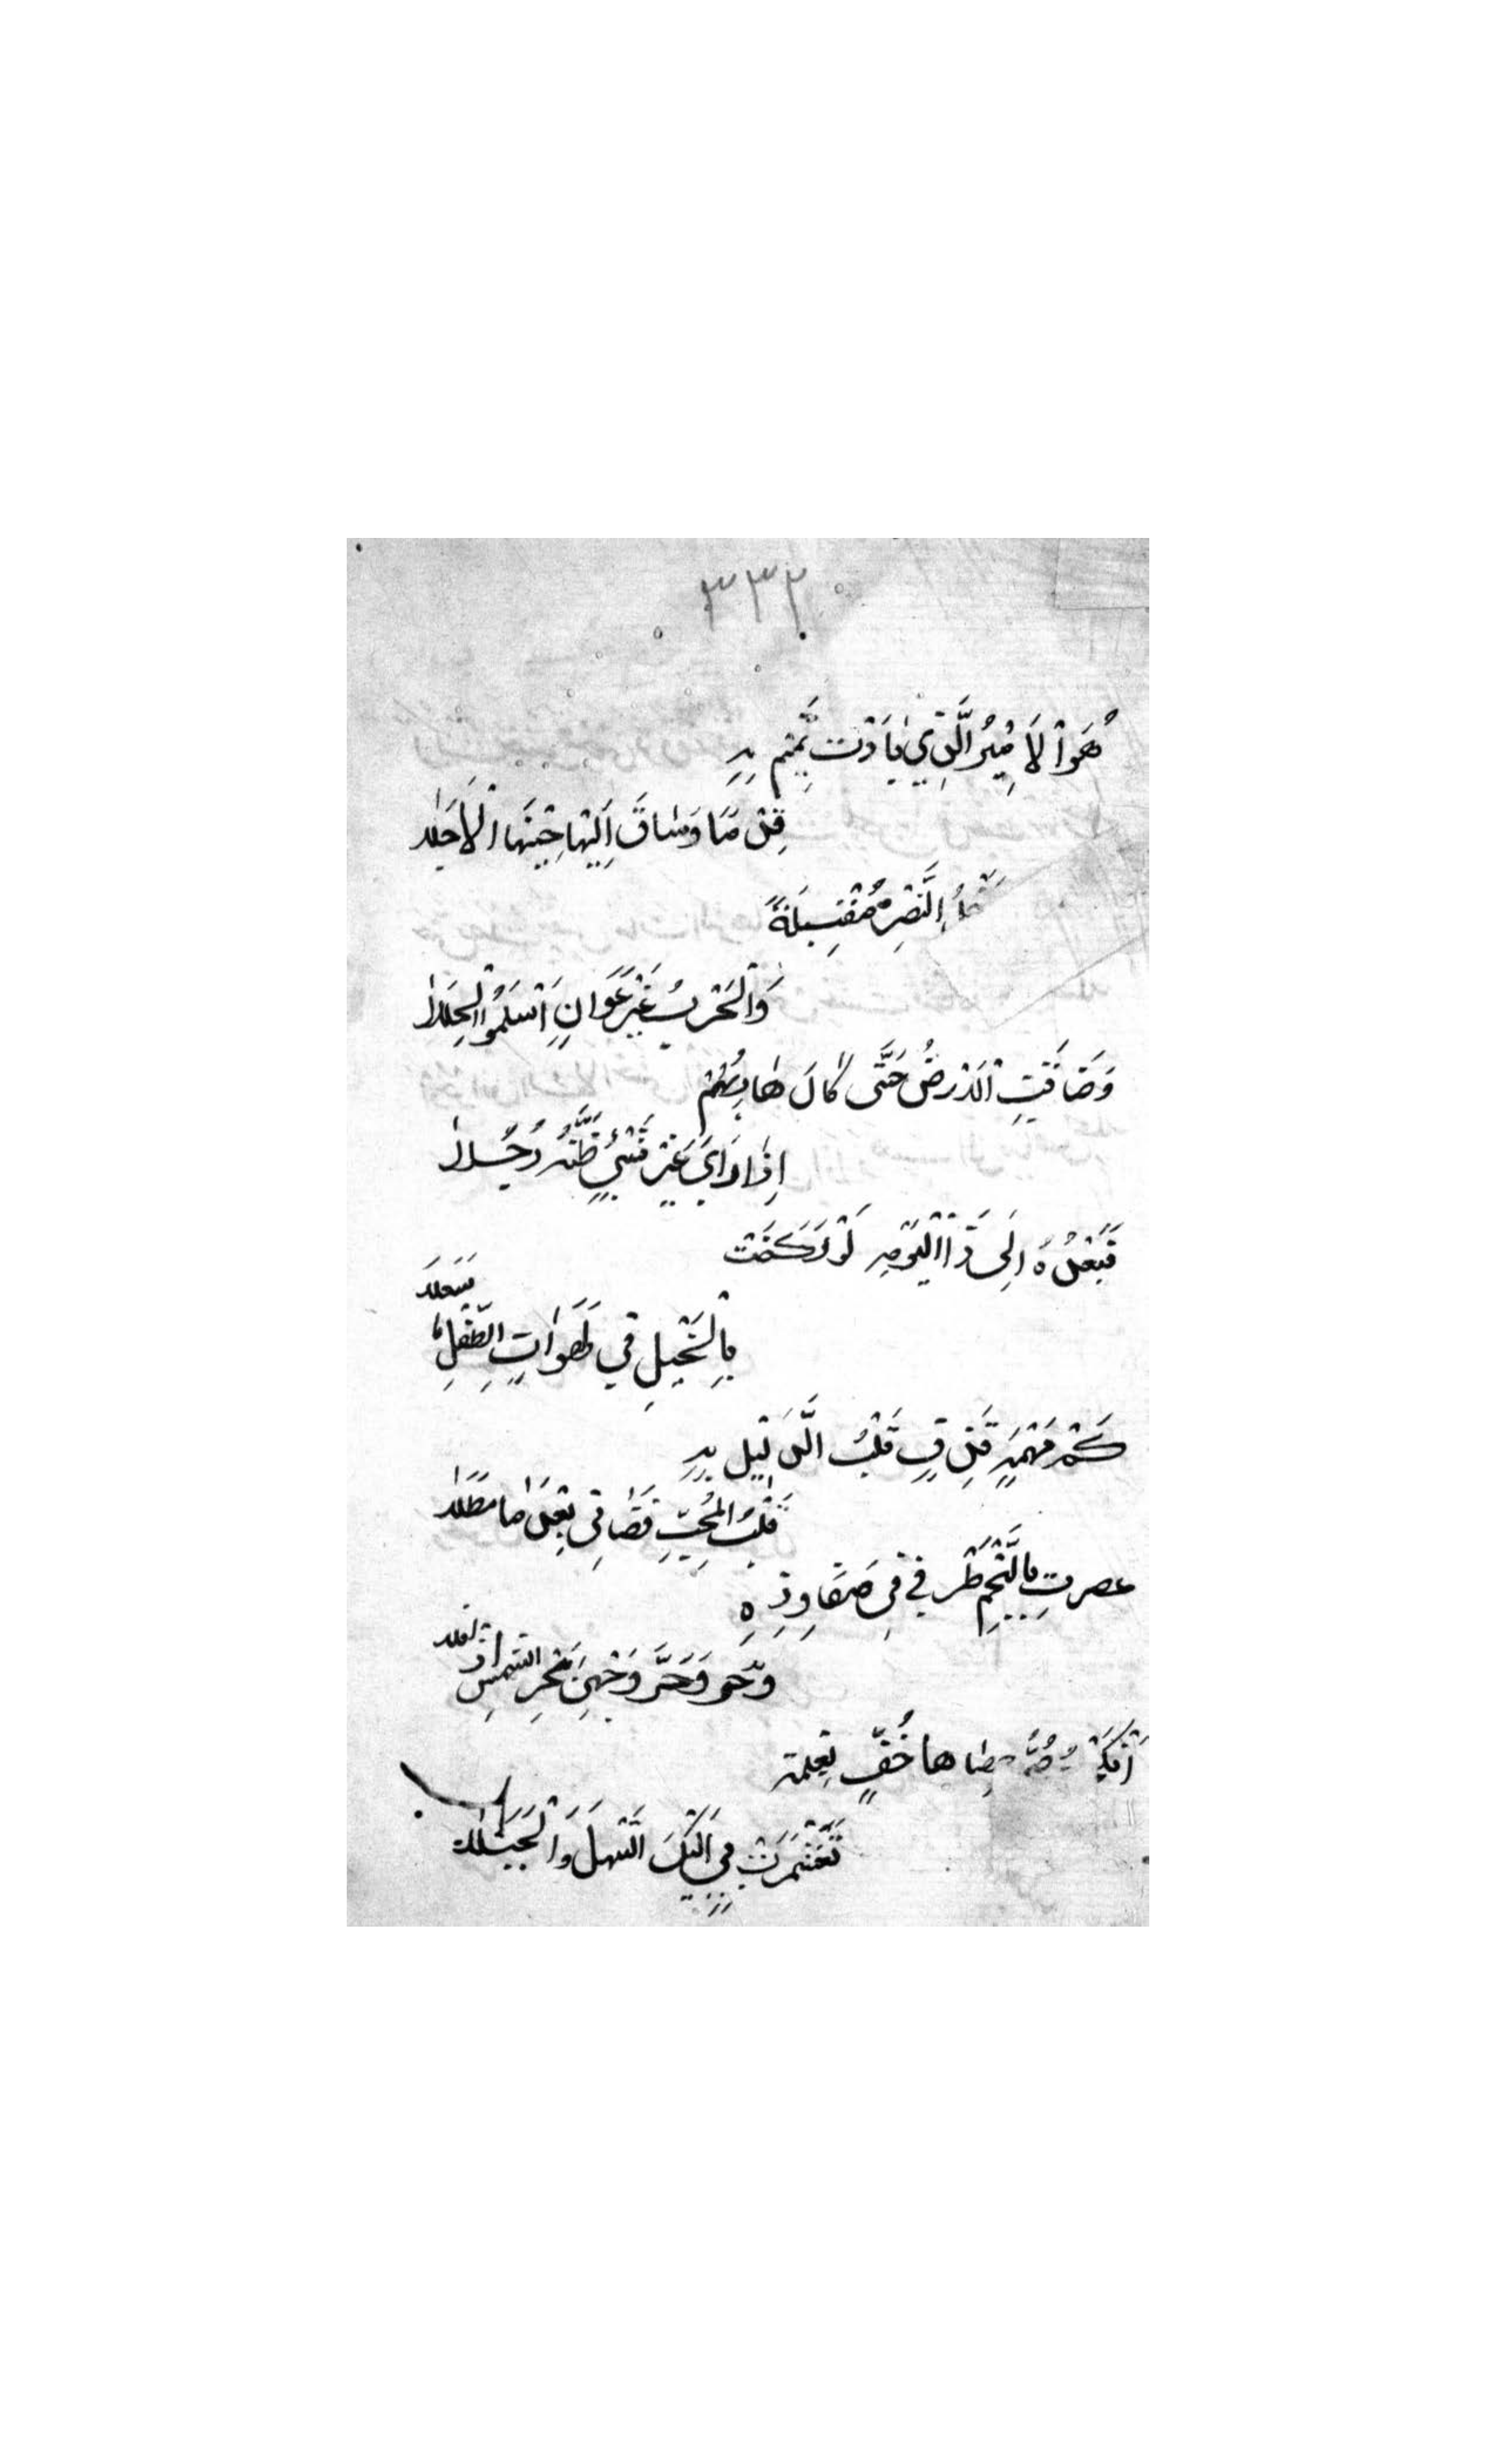 ٢٣٣
هُوَ اْلاَمِيُر الَّذِي بَادَتْ تَمِيْم بِهِ
قِدْمًا وَسَاقَ اِلَيْهَا حِيْنَهَا الْاَجَلَا
النَّصْرِ مُقْتَبِلَةً
وَالْحَرْبُ غَيْرَ عَوَانٍ اَسْلَمُوْا الْحِلَلَا
وَضَاقَتِ الْاَرْضُ حَتَّى كَانَ هَارِبُهُمْ
اِذَا رَاَي غَيْرَ شَيْئٍ ظَنَّهُ رَجُلَا
فَبَعْدُهُ اِلَى ذَا الْيَوْمِ لَوْ رَكَضَتْ
بِالْخَيْلِ فِي لَهَوَاتِ الطِّفْلِ مَا سَعَلَا
كَمْ مَهْمَهٍ قَذِفٍ قَلْبُ الدَّلِيْلِ بِهِ
قَلْبُ الْمُحِبِّ قَضَانِى بَعْدَمَا مَطَلَا
بِالنَّجْمِ طَرْفِى فِى مَفَاوِزِهِ
وَحَرَّ وَجْهِى بَحَرِّ الشَّمْسِ اِذْ اَفَلَا
حَصَاهَا خُفَّ يَعْمَلَة
تَغَشْمَرَتْ بِي اِلَيْكَ السَّهْلَ وَالْجَبَلَا